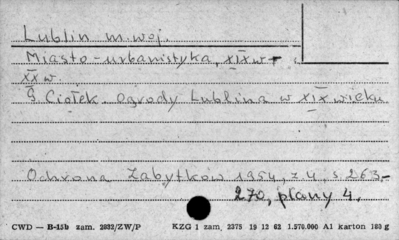 Lublin m. woj.
Miasto - urbanistyka, XIX w -
XX w.
G. Ciołek. Ogrody Lublina w XIX wieku
Ochrona Zabytków 1954, z 4 s 263-
270, plany 4.
CWD — B-15b zam. 2032/ZW/P KZG 1 zam. 2375 19 12 62 1.570.000 A1 karton 160 g